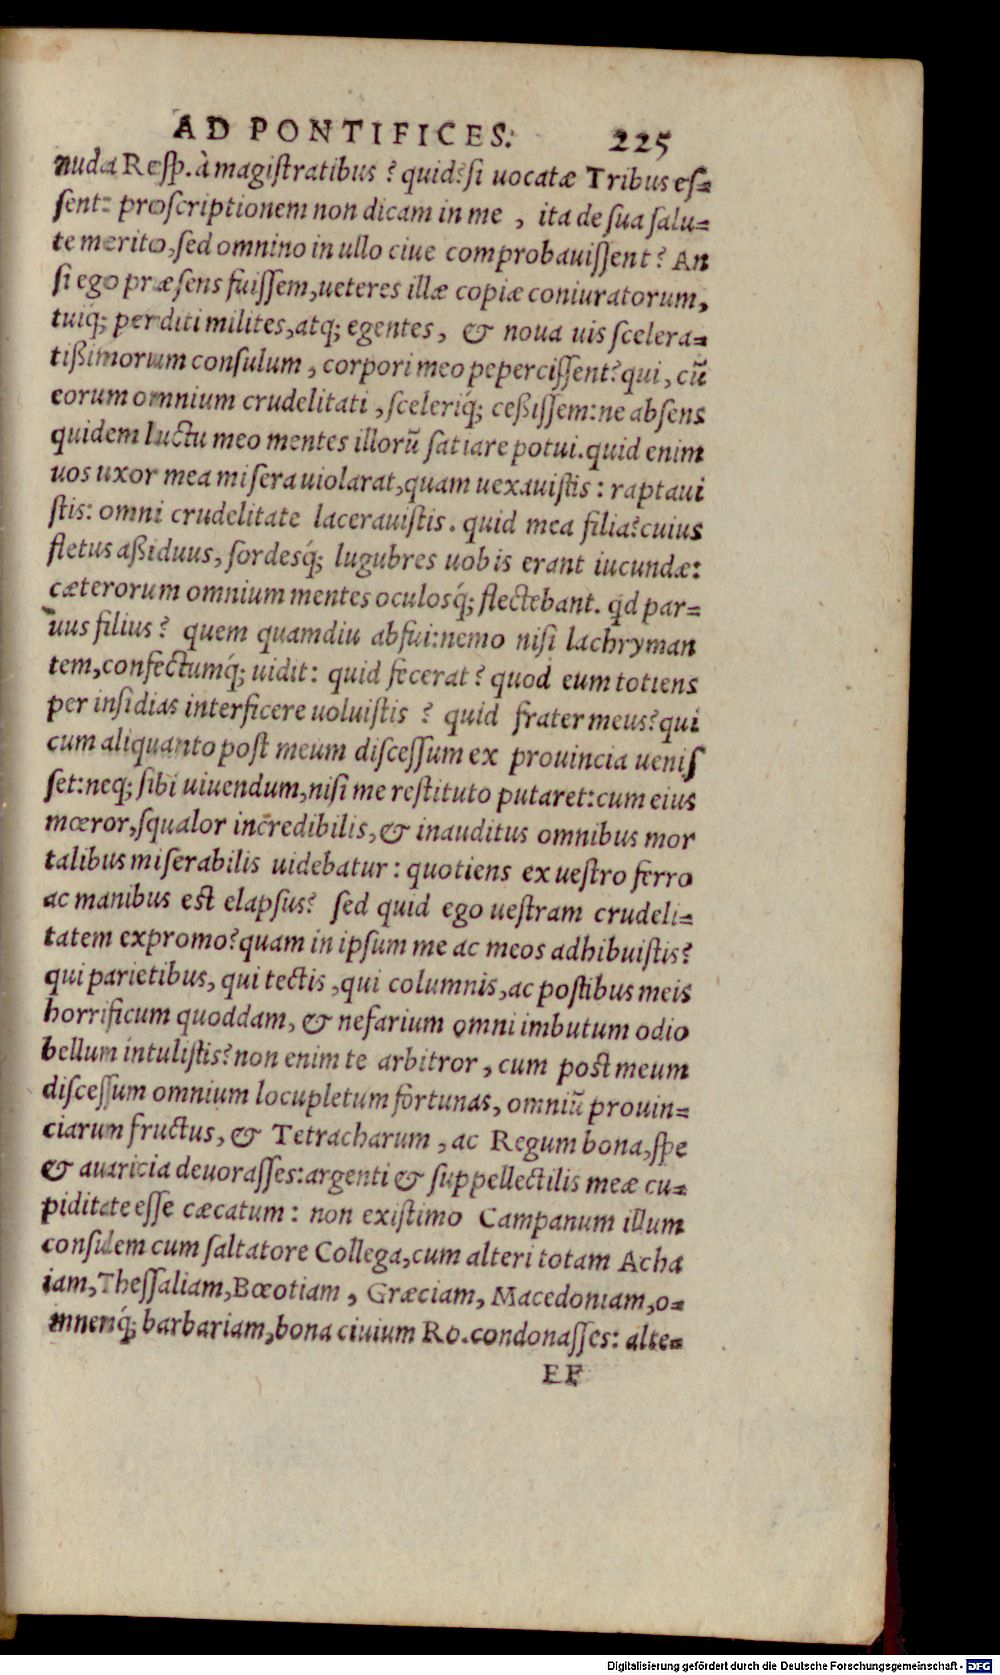 AD PONTIFICES. 225
nuda Resp. à magistratibus? quid? si uocatæ Tribus es=
sent: proscriptionem non dicam in me, ita de sua salu=
te merito, sed omnino in ullo ciue comprobauissent? An
si ego præsens fuissem, ueteres illæ copiæ coniuratorum,
tuiq́; perditi milites, atq; egentes, & noua uis scelera=
tißimorum consulum, corpori meo pepercissent? qui, cũ
eorum omnium crudelitati, sceleriq́; ceßissem: ne absens
quidem luctu meo mentes illorũ satiare potui. quid enim
uos uxor mea misera uiolarat, quam uexauistis: raptaui
stis: omni crudelitate lacerauistis. quid mea filia? cuius
fletus aßiduus, sordesq́; lugubres uobis erant iucundæ:
cæterorum omnium mentes oculosq́; flectebant. qd par=
uus filius? quem quamdiu abfui: nemo nisi lachryman
tem, confectumq́; uidit: quid fecerat? quod eum totiens
per insidias interficere uoluistis? quid frater meus? qui
cum aliquanto post meum discessum ex prouincia uenis
set: neq; sibi uiuendum, nisi me restituto putaret: cum eius
mœror, squalor incredibilis, & inauditus omnibus mor
talibus miserabilis uidebatur: quotiens ex uestro ferro
ac manibus est elapsus? sed quid ego uestram crudeli=
tatem expromo? quam in ipsum me ac meos adhibuistis?
qui parietibus, qui tectis, qui columnis, ac postibus meis
horrificum quoddam, & nefarium omni imbutum odio
bellum intulistis? non enim te arbitror, cum post meum
discessum omnium locupletum fortunas, omniũ prouin=
ciarum fructus, & Tetracharum, ac Regum bona, spe
& auaricia deuorasses: argenti & suppellectilis meæ cu=
piditate esse cæcatum: non existimo Campanum illum
consulem cum saltatore Collega, cum alteri totam Acha
iam, Thessaliam, Bœotiam, Græciam, Macedoniam, o=
mnemq́; barbariam, bona ciuium Ro. condonasses: alte=
EE
Digitalisierung gefördert durch die Deutsche Forschungsgemeinschaft - DFG